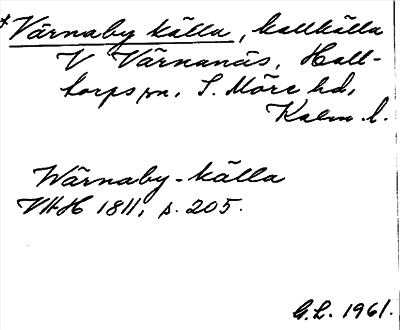 *Värnaby källa, kallkälla
V Värnanäs, Hall-
torps sn, S. Möre hd,
Kalm. l.
Wärnaby-källa
VHH 1811, s. 205.
G.L. 1961.